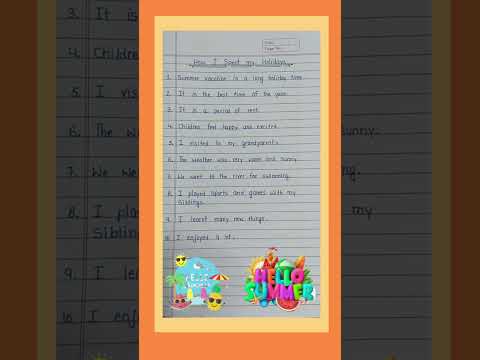 How I Spent my Holidays
1. Summer vacation is a long holiday time.
2. It is the best time of the year.
3. It is a period of rest.
4. Children feel happy and excited.
5. I visited to my grandparent's.
6. The weather was very warm and sunny.
7. We went to the river for swimming.
8. I played sports and games with my
siblings.
9. I learnt many new things.
10. I enjoyed a lot.
HELLO
SUMMER
3. It is
4. Childre
5. I vis
6. The we
unny.
7. We we
ng.
8. I pla
my
Siblin
9. I lea
10. I enj